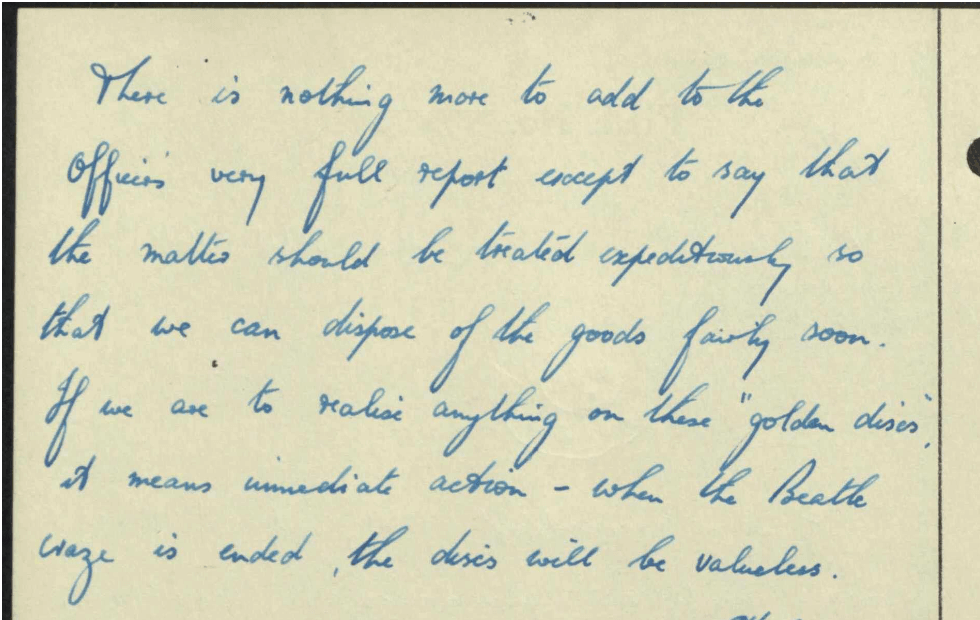 There is nothing more to add to the
Officer's very full report except to say that
the matter should be treated expeditiously so
that we can dispose of the goods fairly soon.
If we are to realise anything on these "golden discs",
it means immediate action - when the Beatle
craze is ended, the discs will be valueless.